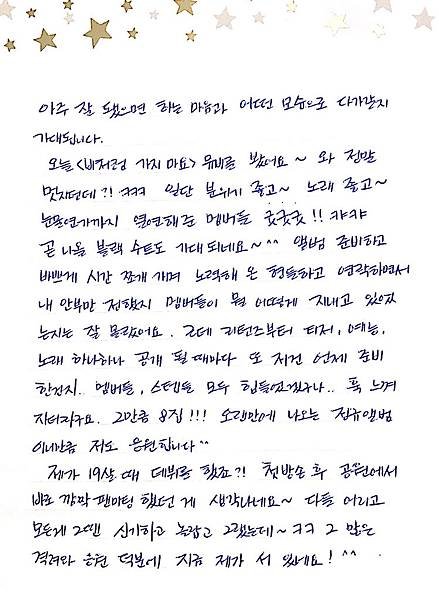 아주 잘 됐으면 하는 마음과 어떤 모습으로 다가갈지
기대됩니다.
오늘 <비처럼 가지마요> 뮤비를 봤어요~ 와 정말
멋지던데?! ㅋㅋㅋ 일단 분위기 좋고~ 노래 좋고~
눈물연기까지 열연해준 멤버들 굿굿굿!! 캬캬
곧 나올 블랙 수트도 기대 되네요~^^ 앨범 준비하고
바쁘게 시간 쪼개 가며 노력해 온 형들하고 연락하면서
내 안부만 전했지 멤버들이 뭘 어떻게 지내고 있었
는지는 잘 몰랐어요. 근데 리턴즈부터 티저, 예능,
노래 하나하나 공개 될 때마다 또 저건 언제 준비
한건지.. 멤버들, 스텝들 모두 힘들었겠구나.. 푹 느껴
지더라구요. 그만큼 8집!!! 오랜만에 나오는 정규앨범
이니만큼 저도 응원합니다^^
제가 19살 때 데뷔를 했죠?! 첫방송 후 공원에서
바로 깜짝 팬미팅 했던 게 생각나네요~ 다들 어리고
모든게 그땐 신기하고 놀랍고 그랬는데~ㅋㅋ 그 많은
격려와 응원 덕분에 지금 제가 서 있네요! ^^